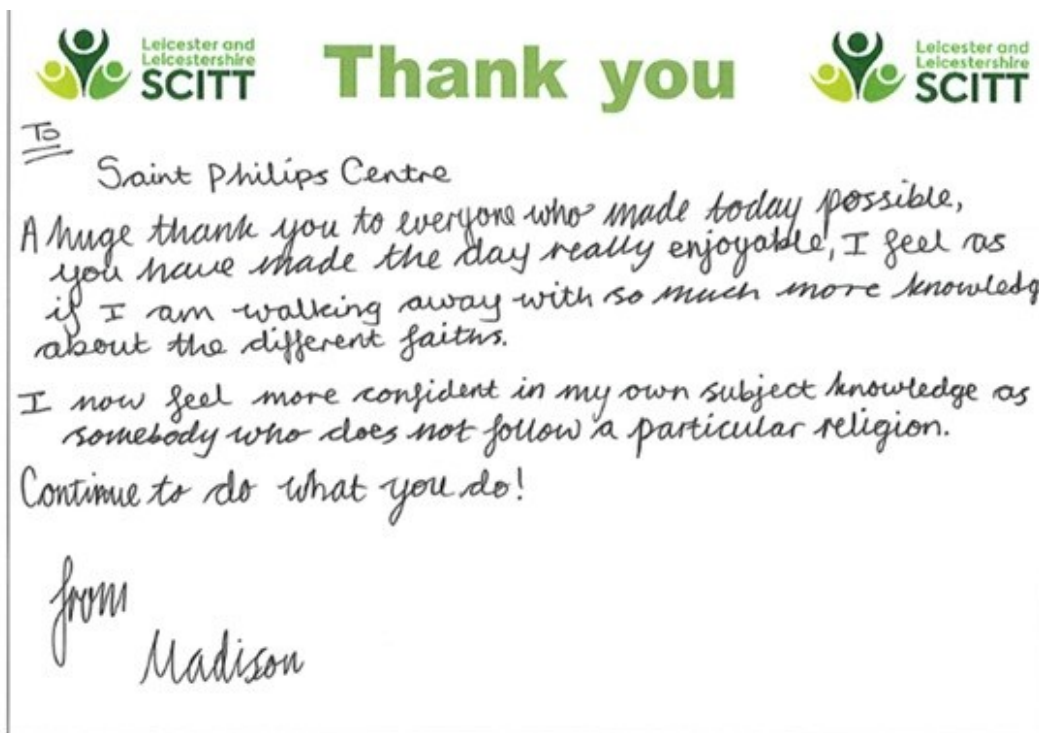 Leicester and
Leicestershire
SCITT
Thank you
Leicester and
Leicestershire
SCITT
To
Saint Philips Centre
A huge thank you to everyone who made today possible,
you have made the day really enjoyable, I feel as
if I am walking away with so much more knowledg
about the different faiths.
I now feel more confident in my own subject knowledge as
somebody who does not follow a particular religion.
Continue to do what you do!
from
Madison